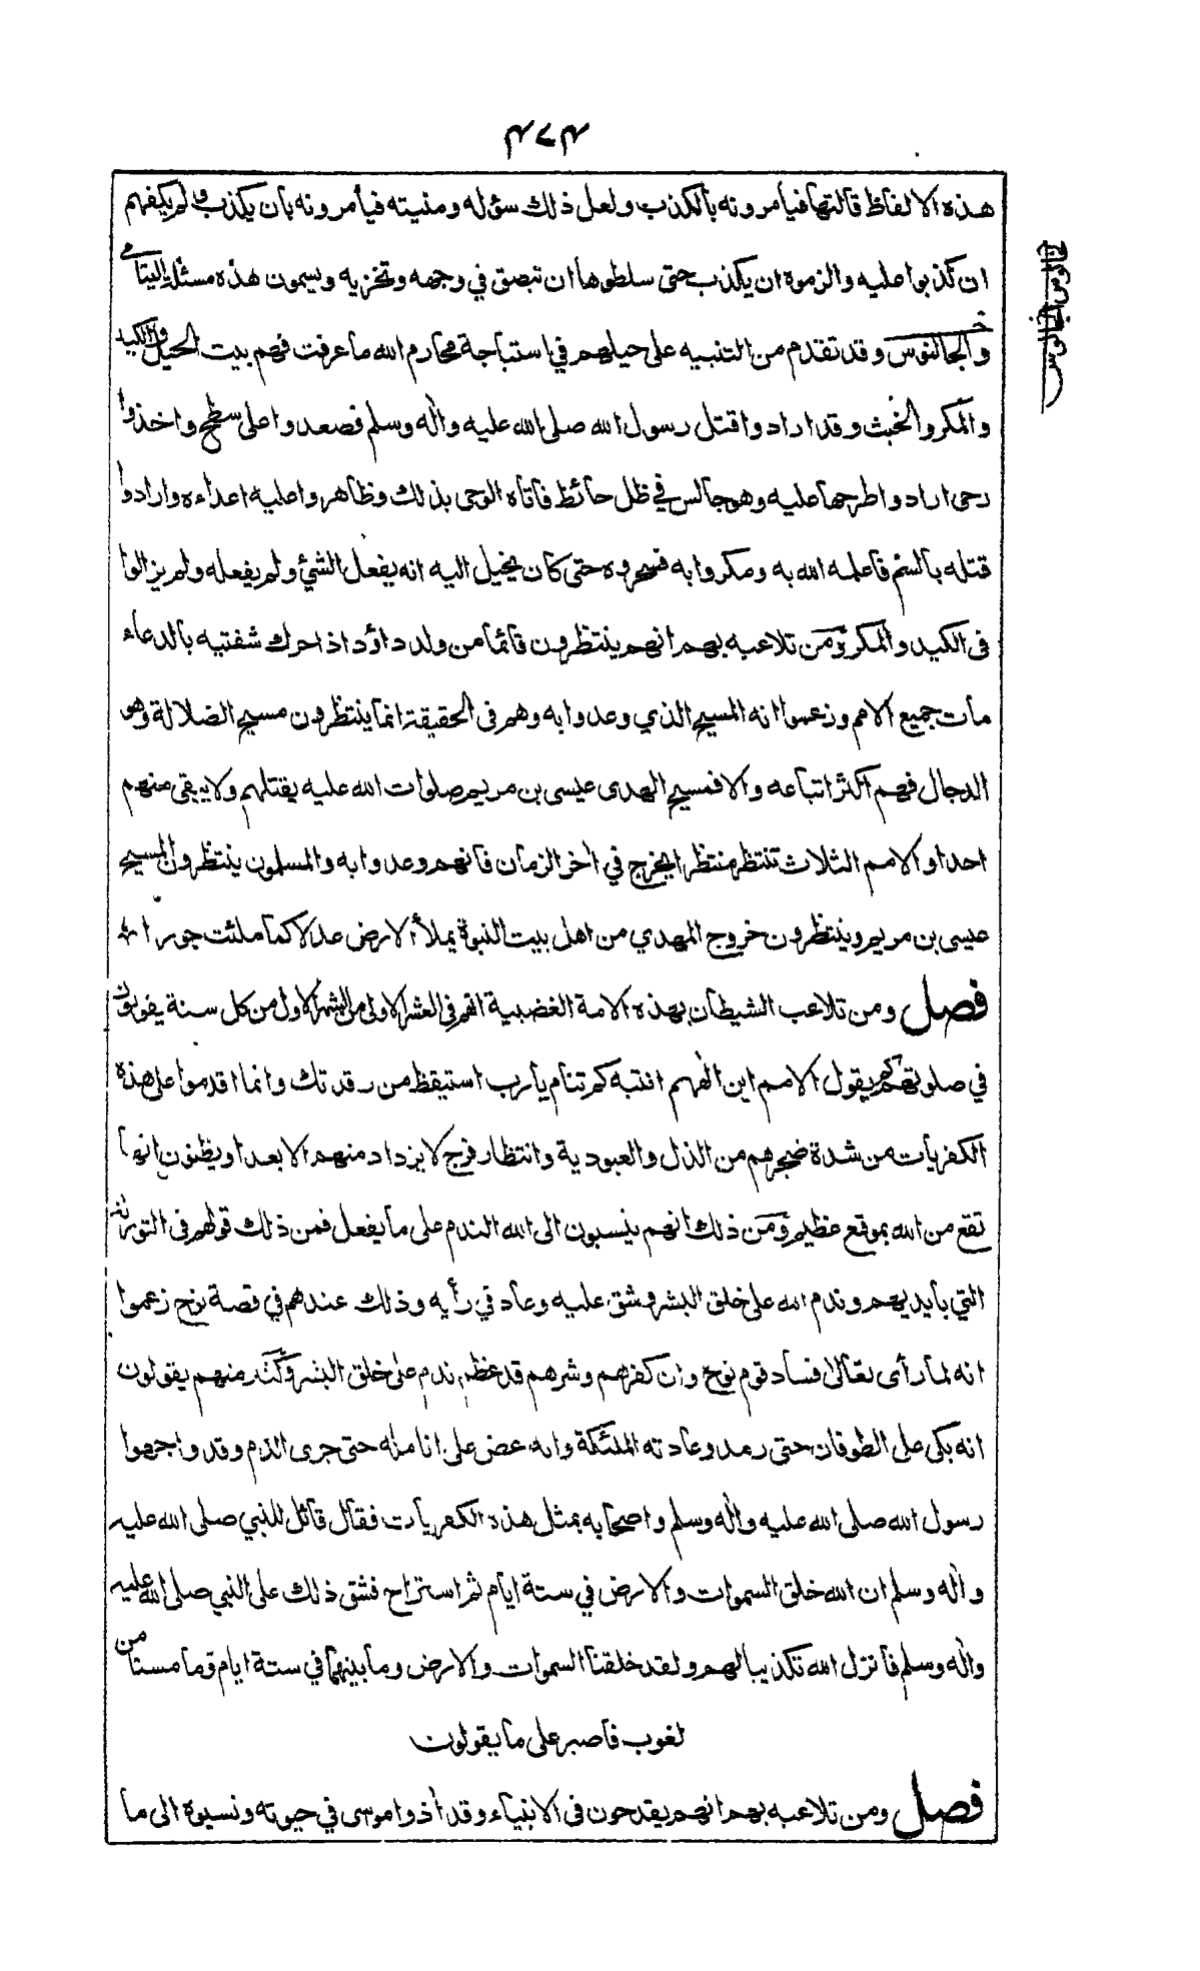 ٤٧٤
هذه الالفاظ قالتها فيأمرونه بالكذب ولعل ذلك سؤله ومنيته فيأمرونه بان يكذب ولم يكفهم
ان كذبوا عليه والزموه ان يكذب حتى سلطوها ان تبصق في وجهه وتخزيه ويسمون هذه مسئلة اليتامى
والجالنوس وقد تقدم من التنبيه على حيلهم في استباحة محارم الله ما عرفت فهم بيت الحيل والكيد
والمكر والخبث وقد ارادوا قتل رسول الله صلى الله عليه واله وسلم فصعدوا على سطح واخذوا
رحى ارادوا طرحها عليه وهو جالس في ظل حائط فاتاه الوحى بذلك وظاهروا عليه اعداءه وارادوا
قتله بالسم فاعلمه الله به ومكروا به فسحروه حتى كان يخيل اليه انه يفعل الشئ ولم يفعله ولم يزالوا
فى الكيد والمكر ومن تلاعبه بهم انهم ينتظرون قائما من ولد داؤد اذا حرك شفتيه بالدعاء
مات جميع الامم وزعموا انه المسيح الذي وعدوا به وهم فى الحقيقة انما ينتظرون مسيح الضلالة وهو
الدجال فهم اكثر اتباعه والا فمسيح الهدى عيسى بن مريم صلوات الله عليه يقتلهم ولا يبقى منهم
احدا والامم الثلاث تنتظر منتظرا يخرج في اخر الزمان فانهم وعدوا به والمسلمون ينتظرون المسيح
عيسى بن مريم وينتظرون خروج المهدي من اهل بيت النبوة يملأ الارض عدلا كما ملئت جورا
فصل ومن تلاعب الشيطان بهذه الامة الغضبية انهم فى العشر الاولى من الشهر الاول من كل سنة يقولون
في صلوتهم كم يقول الامم اين الههم انتبه كم تنام يا رب استيقظ من رقدتك وانما اقدموا على هذه
الكفريات من شدة ضجرهم من الذل والعبودية وانتظار فرج لا يزداد منهم الا بعدا ويظنون انها
تقع من الله بموقع عظيم ومن ذلك انهم ينسبون الى الله الندم على ما يفعل فمن ذلك قولهم فى التوراة
التي بايديهم وندم الله على خلق البشر وشق عليه وعاد في رأيه وذلك عندهم في قصة نوح زعموا
انه لما رأى تعالى فساد قوم نوح وان كفرهم وشرهم قد عظم ندم على خلق البشر وكثير منهم يقولون
انه بكى على الطوفان حتى رمد وعادته الملئكة وانه عض على انامله حتى جرى الدم وقد واجهوا
رسول الله صلى الله عليه واله وسلم واصحابه بمثل هذه الكفريات فقال قائل للنبي صلى الله عليه
واله وسلم ان الله خلق السموات والارض في ستة ايام ثم استراح فشق ذلك على النبي صلى الله عليه
واله وسلم فانزل الله تكذيبا لهم ولقد خلقنا السموات والارض وما بينهما في ستة ايام وما مسنا من
لغوب فاصبر على ما يقولون
فصل ومن تلاعبه بهم انهم يقدحون فى الانبياء وقد أذوا موسى في حيوته ونسبوه الى ما